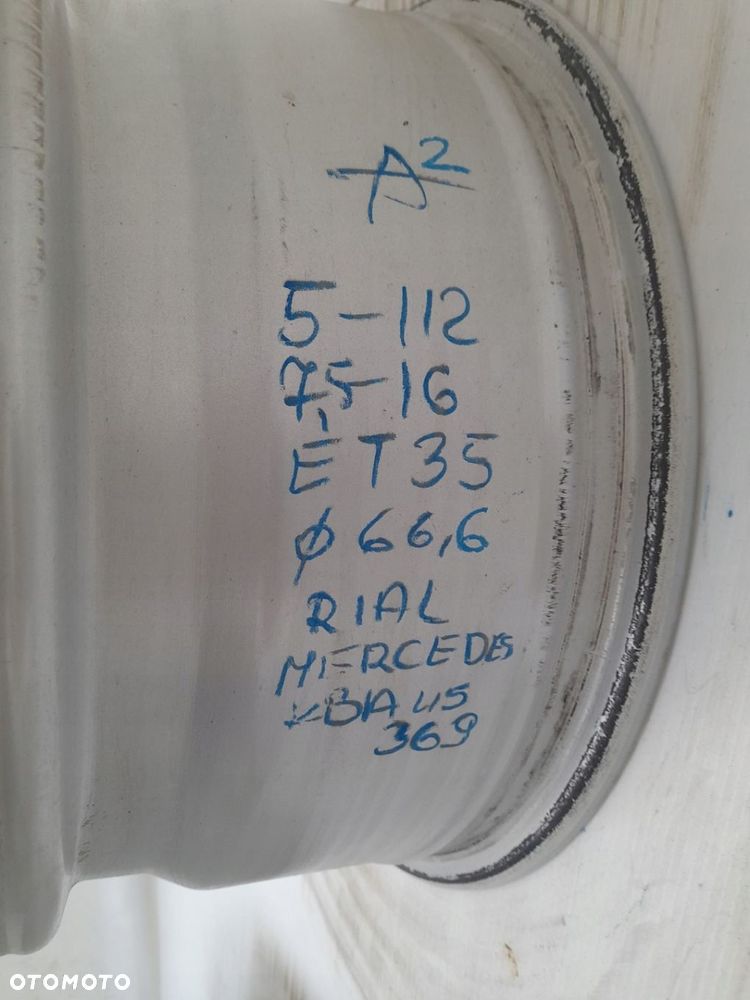 A²
5-112
7,5-16
ET35
φ 66,6
RIAL
MERCEDES
KBA 45
369
OTOMOTO